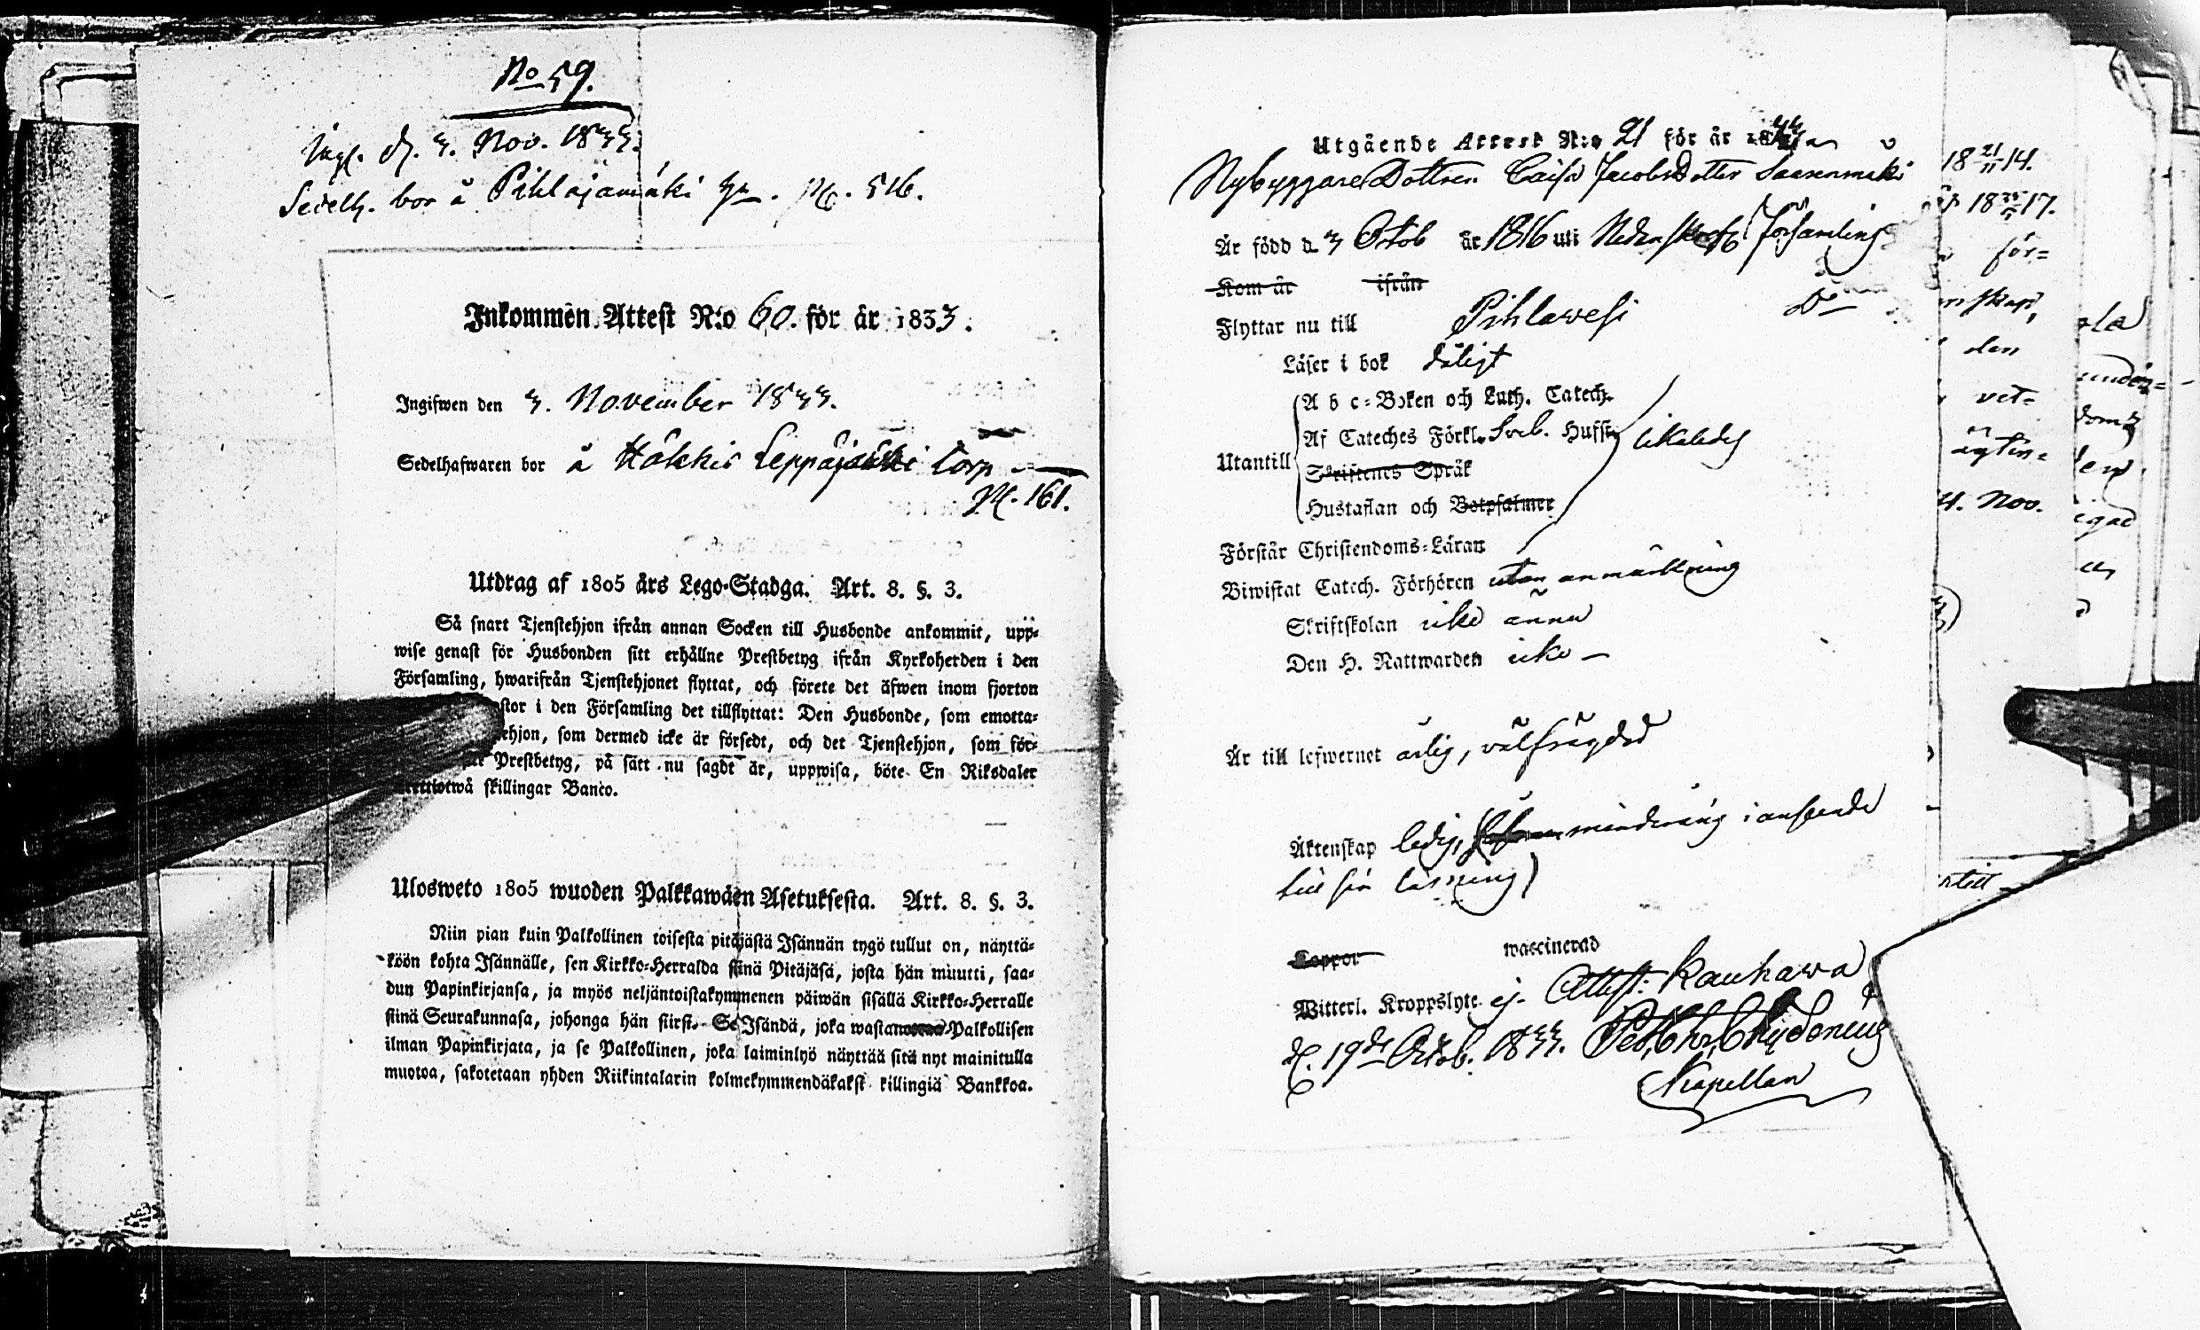 No 59.
Ingf. d. 3. Nov. 1833.
Sedelh. bor å Pihlajamäki
p. 516.
Inkommen Attest N:o 60. för år 1833.
Ingifwen den 3. November 1833.
Sedelhafwaren bor å Häkkis Leppäjärwi Torp
p. 161.
Utdrag af 1805 års Lego-Stadga. Art. 8. §. 3.
Så snart Tjenstehjon ifrån annan Socken till Husbonde ankommit, upp-
wise genast för Husbonden sitt erhållne Prestbetyg ifrån Kyrkoherden i den
Församling, hwarifrån Tjenstehjonet flyttat, och förete det äfwen inom fjorton
stor i den Församling det tillflyttat: Den Husbonde, som emotta-
ehjon, som dermed icke är försedt, och det Tjenstehjon, som för-
Prestbetyg, på sätt nu sagdt är, uppwisa, böte En Riksdaler
trettiotwå skillingar Banco.
Ulosweto 1805 wuoden Palkkawäen Asetuksesta. Art. 8. §. 3.
Niin pian kuin Palkollinen toisesta pitäjästä Isännän tygö tullut on, näyttä-
köön kohta Isännälle, sen Kirkko-Herralda siinä Pitäjäsä, josta hän muutti, saa-
dun Papinkirjansa, ja myös neljäntoistakymmenen päiwän sisällä Kirkko-Herralle
siinä Seurakunnasa, johonga hän siirst. Se Isändä, joka wastan Palkollisen
ilman Papinkirjata, ja se Palkollinen, joka laiminlyö näyttää sitä nyt mainitulla
muotoa, sakotetaan yhden Riikintalarin kolmekymmendäkaksi killingiä Bankkoa.
Utgående Attest N:o 21 för år 18
Nybyggare Dottren Caisa Jacobsdotter Saarenmäki
Är född d. 3 Octob år 1816 uti Nederhärfs församling
Kom år ifrån
Flyttar nu till Pihlawesi Do
Läser i bok dåligt
A b c-Boken och Luth. Catech.
Af Cateches Förkl. Sveb. Hufst. likaledes
Utantill
Skriftenes Språk
Hustaflan och Botpsalmer
Förstår Christendoms-Läran
Biwistat Catech. Förhören utan anmärkning
Skriftskolan icke ännu
Den H. Nattwarden icke
Är till lefwernet ärlig, välfrägdad
Äktenskap ledig, minderårig i anseende
till sin läsning)
Koppor waccinerad
Witterl. Kroppslyte ej. Attest: Kauhava
d. 19de Octob. 1833. Pet. Chr. Chydenius
Kapellan
18 21/11 14.
17.
för-
skap,
den
vet-
ägten-
4. Nov.